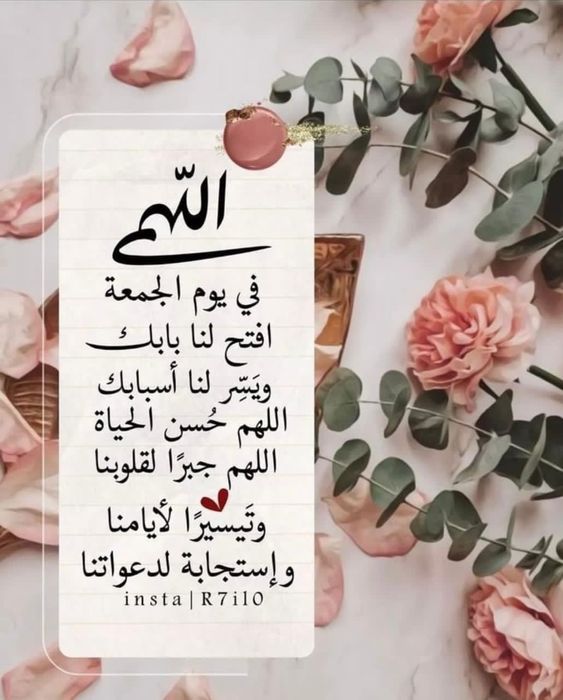 اللهم
في يوم الجمعة
افتح لنا بابك
ويَسِّر لنا أسبابك
اللهم حُسن الحياة
اللهم جبرًا لقلوبنا
وتَيسيرًا لأيامنا
وإستجابة لدعواتنا
insta | R7il0